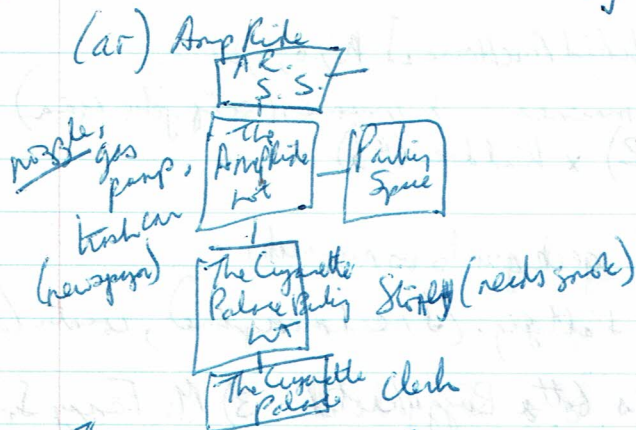 (ar) AmpRide
A.R.
S.S.
nozzle,
gas
pump,
trashcan
(newspaper)
The
AmpRide
Lot
Parking
Space
The Cigarette
Palace Parking
Lot
(needs smoke)
The Cigarette
Palace
Clerk